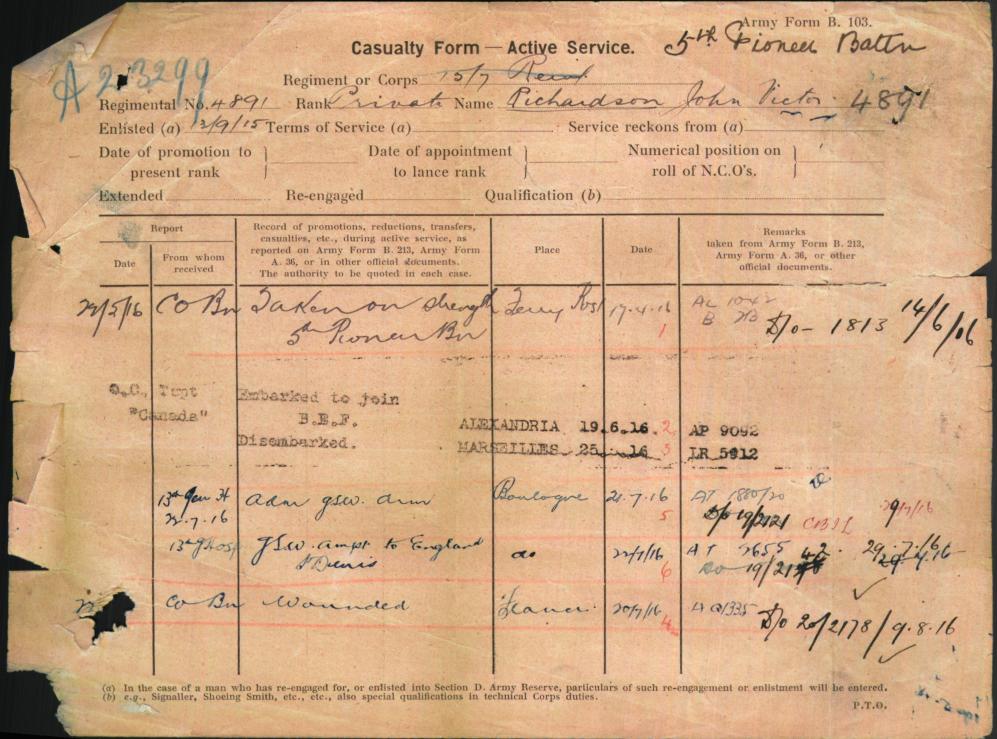 Army Form B. 103.
Casualty Form — Active Service.
5th Pioneer Battn
A 23299
Regiment or Corps 15/7 Reinf
Regimental No. 4891 Rank Private Name Richardson John Victor 4891
Enlisted (a) 12/9/15 Terms of Service (a) Service reckons from (a)
Date of promotion to present rank } Date of appointment to lance rank } Numerical position on roll of N.C.O's. }
Extended Re-engaged Qualification (b)
Report
Date
From whom received
Record of promotions, reductions, transfers,
casualties, etc., during active service, as
reported on Army Form B. 213, Army Form
A. 36, or in other official documents.
The authority to be quoted in each case.
Place
Date
Remarks
taken from Army Form B. 213,
Army Form A. 36, or other
official documents.
CO Bn Taken on strength 17.4.16 1 D/o - 1813 14/6/16
5th Pioneer Bn
O.C. Tspt Embarked to join
"Canada" B.E.F. ALEXANDRIA 19.6.16 2 AP 9092
Disembarked. MARSEILLES 25 16 3 LR 5912
13th Gen H Adm gsw. arm Boulogne 21.7.16 5
22.7.16 19/2121
GSW. arm to England do 22/7/16 6 29.7.16
St Denis
CO Bn Wounded 20/7/16 4 D/o 20/2178/9.8.16
(a) In the case of a man who has re-engaged for, or enlisted into Section D. Army Reserve, particulars of such re-engagement or enlistment will be entered.
(b) e.g., Signaller, Shoeing Smith, etc., etc., also special qualifications in technical Corps duties.
P.T.O.